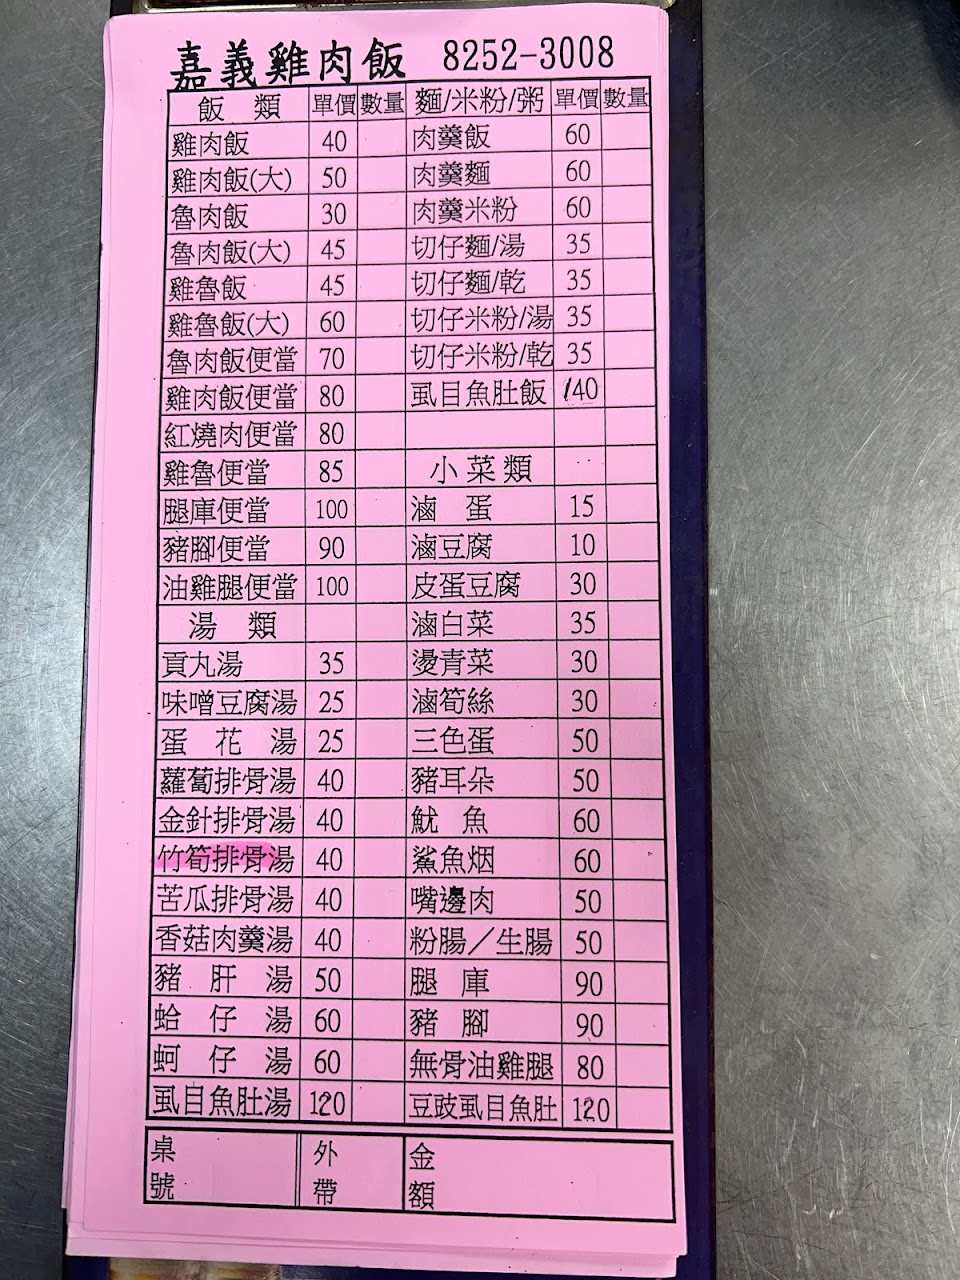 嘉義雞肉飯 8252-3008
飯類 單價 數量 麵/米粉/粥 單價 數量
雞肉飯 40 肉羹飯 60
雞肉飯(大) 50 肉羹麵 60
魯肉飯 30 肉羹米粉 60
魯肉飯(大) 45 切仔麵/湯 35
雞魯飯 45 切仔麵/乾 35
雞魯飯(大) 60 切仔米粉/湯 35
魯肉飯便當 70 切仔米粉/乾 35
雞肉飯便當 80 虱目魚肚飯 140
紅燒肉便當 80
雞魯便當 85 小菜類
腿庫便當 100 滷蛋 15
豬腳便當 90 滷豆腐 10
油雞腿便當 100 皮蛋豆腐 30
湯類 滷白菜 35
貢丸湯 35 燙青菜 30
味噌豆腐湯 25 滷筍絲 30
蛋花湯 25 三色蛋 50
蘿蔔排骨湯 40 豬耳朵 50
金針排骨湯 40 魷魚 60
竹筍排骨湯 40 鯊魚烟 60
苦瓜排骨湯 40 嘴邊肉 50
香菇肉羹湯 40 粉腸／生腸 50
豬肝湯 50 腿庫 90
蛤仔湯 60 豬腳 90
蚵仔湯 60 無骨油雞腿 80
虱目魚肚湯 120 豆豉虱目魚肚 120
桌號 外帶 金額